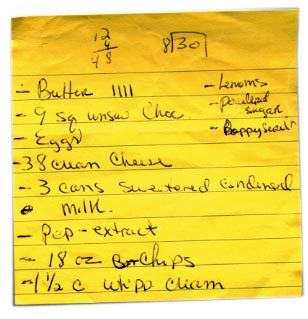 12
4
48
8)30
- Butter 1111
- 9 sq unsw Choc
- Eggs
- 38 cream Cheese
- 3 cans sweetened condensed
milk.
- Pep-extract
- 18 oz Chips
- 1 1/2 c whipp cream
- Lemons
- powdered
sugar
- Poppyseeds